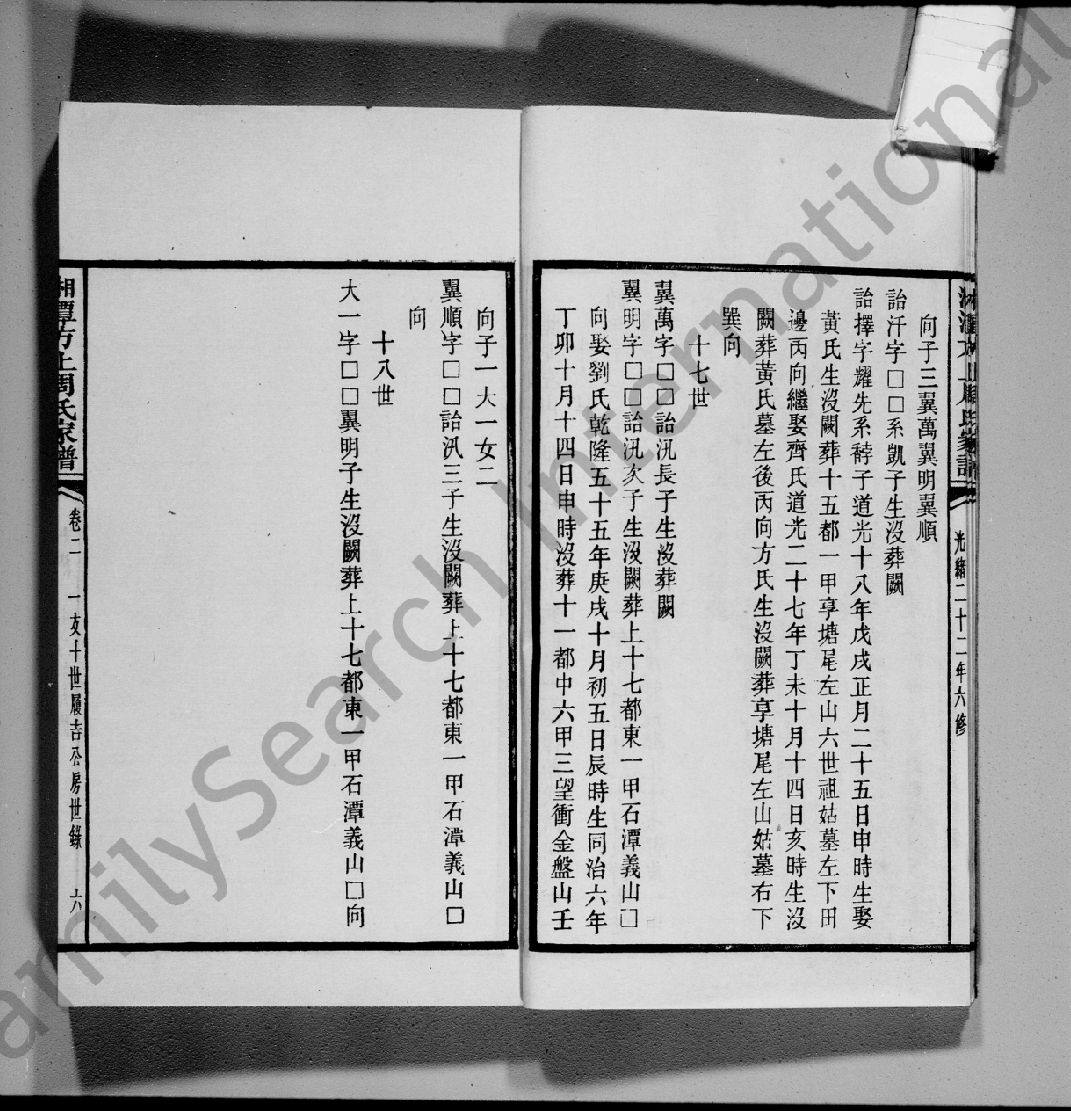 光緒二十二年六修
向子三翼萬翼明翼順
詒汗字□□系凱子生沒葬闕
詒擇字耀先系子道光十八年戊戌正月二十五日申時生娶
黃氏生沒闕葬十五都一甲享塘尾左山六世祖姑墓左下田
邊丙向繼娶齊氏道光二十七年丁未十月十四日亥時生沒
闕葬黃氏墓左後丙向方氏生沒闕葬享塘尾左山姑墓右下
巽向
十七世
翼萬字□□詒汛長子生沒葬闕
翼明字□□詒汛次子生沒闕葬上十七都東一甲石潭義山□
向娶劉氏乾隆五十五年庚戌十月初五日辰時生同治六年
丁卯十月十四日申時沒葬十一都中六甲三望衝金盤山壬
向子一大一女二
翼順字□□詒汛三子生沒闕葬上十七都東一甲石潭義山□
向
十八世
大一字□□翼明子生沒闕葬上十七都東一甲石潭義山□向
湘潭方上周氏家譜
卷二
一支十世履吉公房世錄
六
FamilySearch International